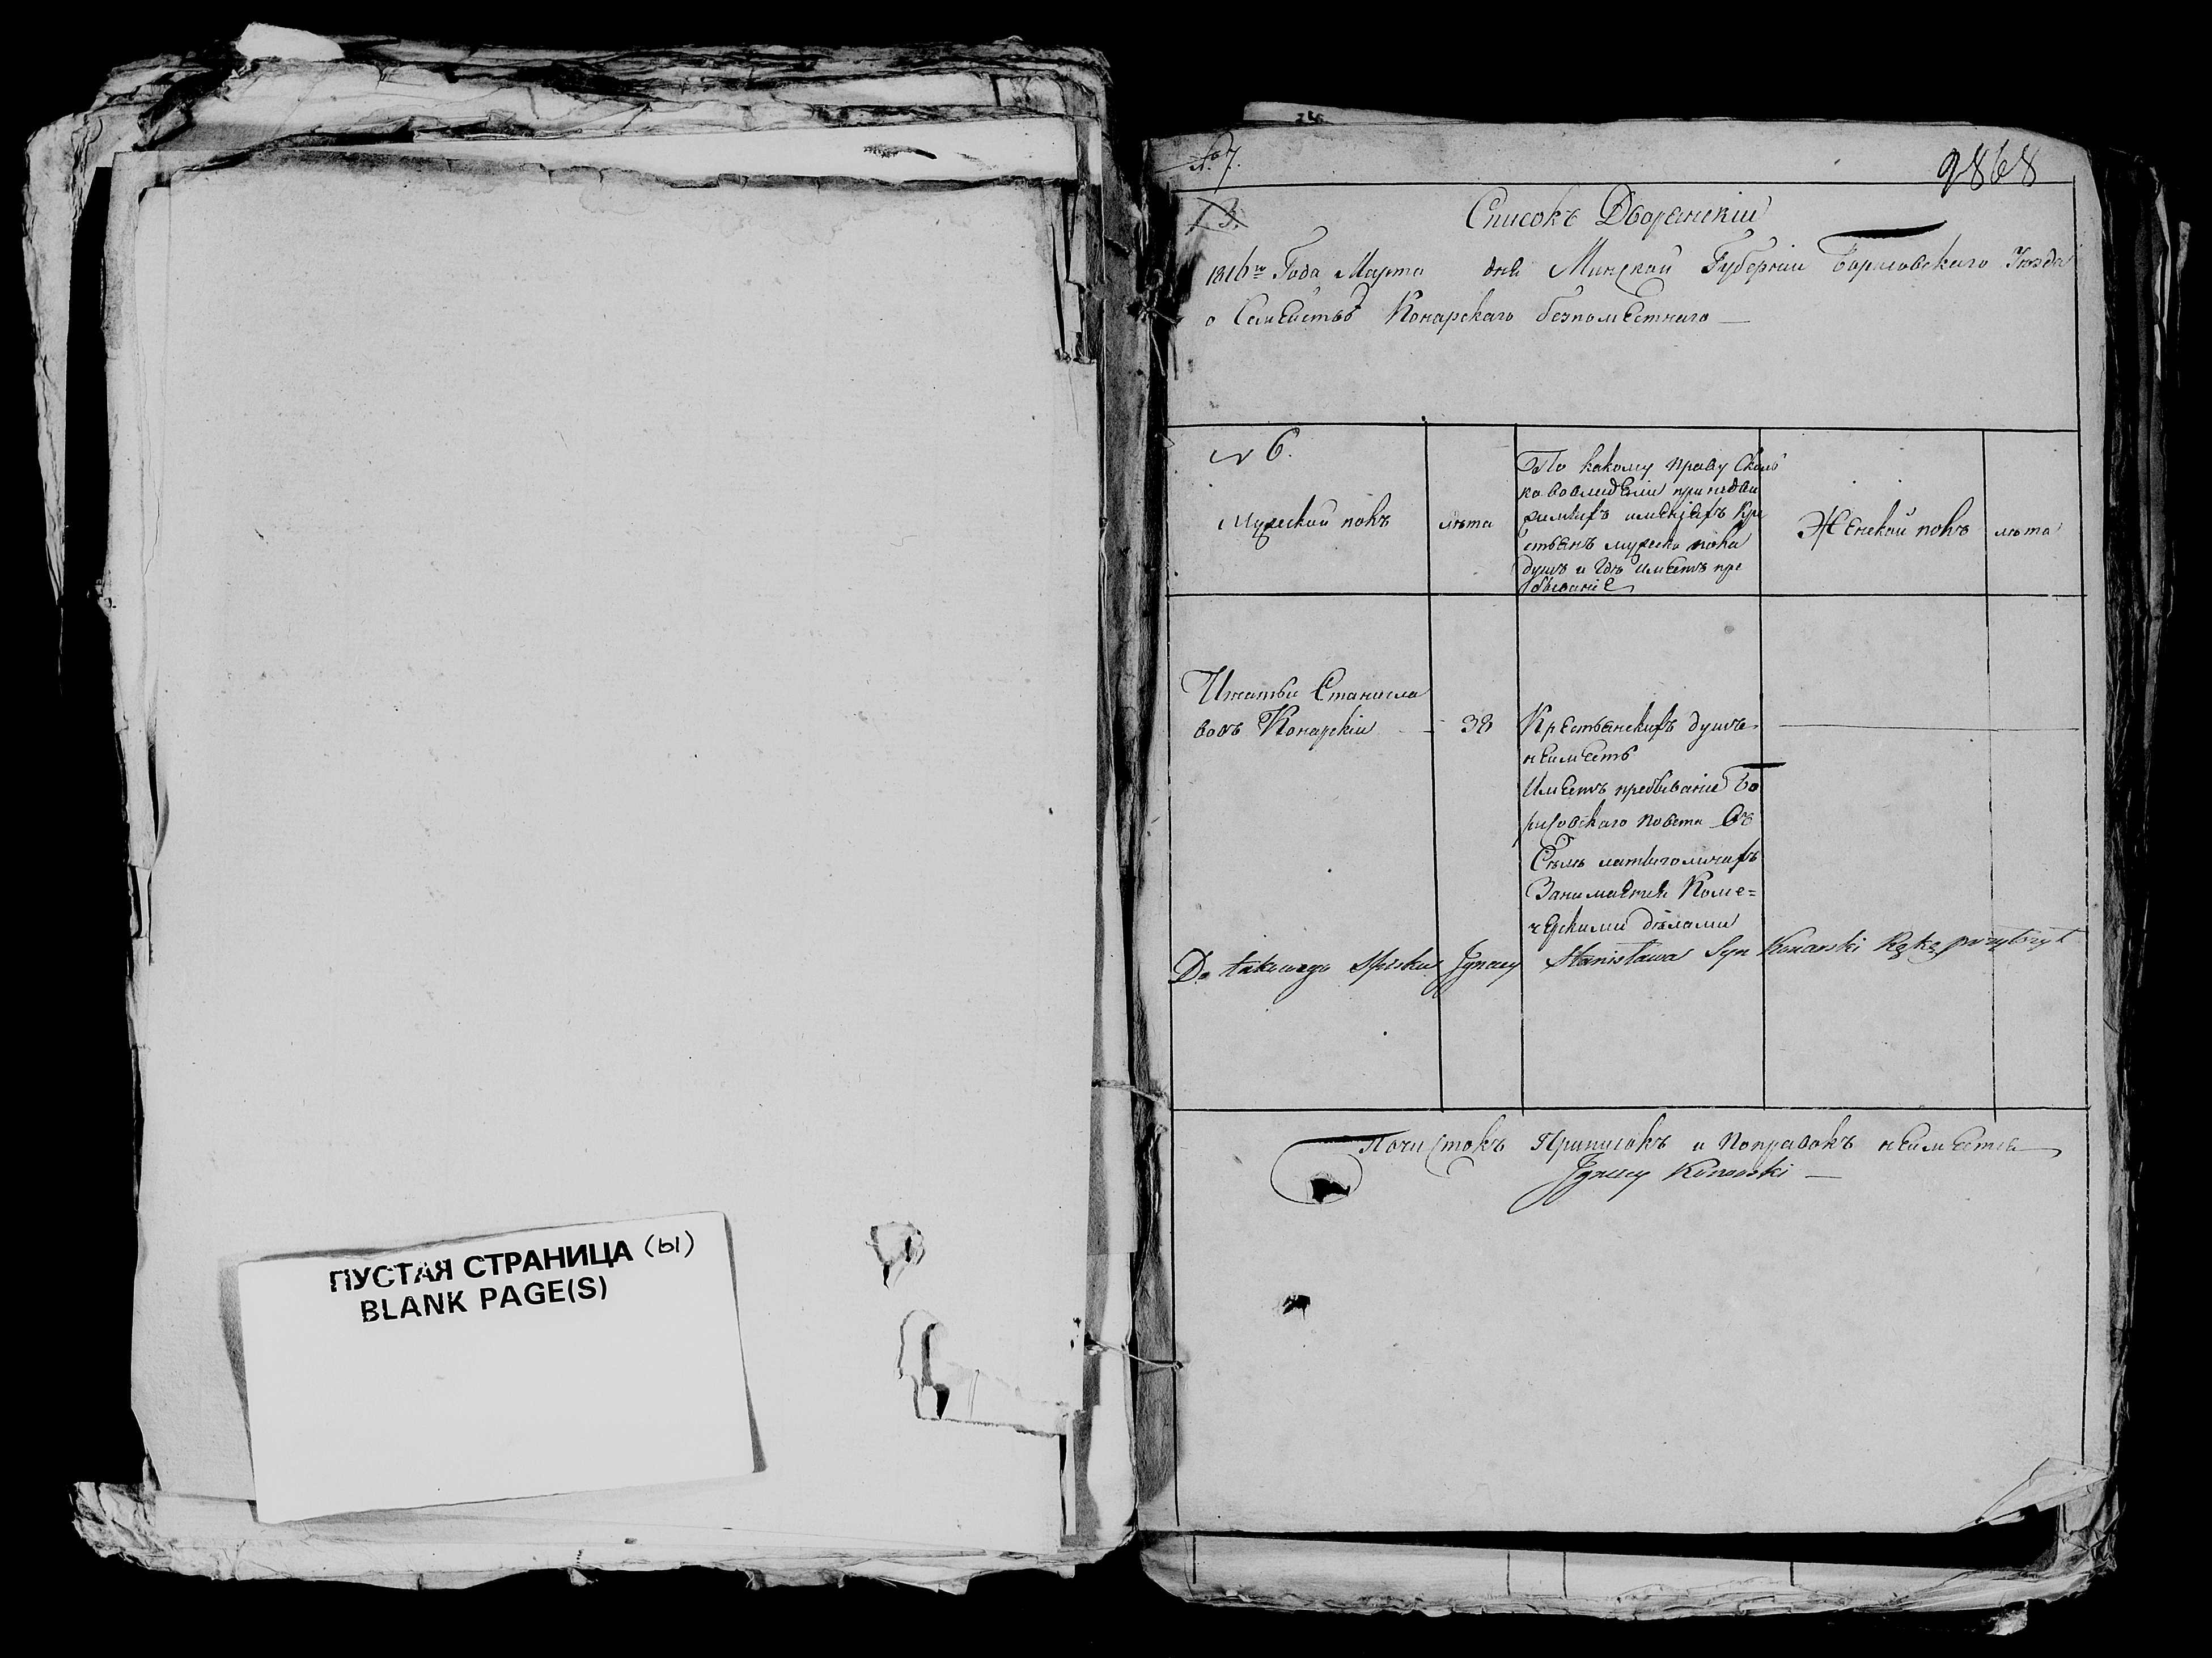 ПУСТАЯ СТРАНИЦА (ы)
BLANK PAGE(S)
№ 7.
9868
13.
Списокъ Дворянскій
1816го Года Марта дня Минской Губерніи Борисовскаго Уѣзда
о Семействѣ Конарскаго безпоместнаго —
№ 6.
Мужеской полъ
лѣта
По какому праву Сколь
ко во владеніи при недви
жимыхъ именіяхъ Кре
стьянъ мужеска пола
душъ и где имеетъ пре
бываніе
Женской полъ
лѣта
Игнатьи Станисла
вовъ Конарскіи
38
Крестьянскихъ душъ
неимеетъ
Имеетъ пребываніе Бо
рисовскаго повета Въ
Селе
Занимается
делами
Do takowego Spisku Ignacy Stanisława Syn Konarski Rękę przyłożył
Почистокъ Приписокъ и Поправокъ неимеется
Ignacy Konarski —